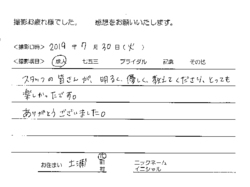 撮影お疲れ様でした。 感想をお願いいたします。
<撮影日時> 2019 年 7 月 30 日 (火)
<撮影項目> 成人 七五三 ブライダル 記念 その他
スタッフの皆さんが、明るく、優しく、教えてくださり、とっても
楽しかったです。
ありがとうございました。
お住まい 土浦 市 町 村 ニックネーム
イニシャル